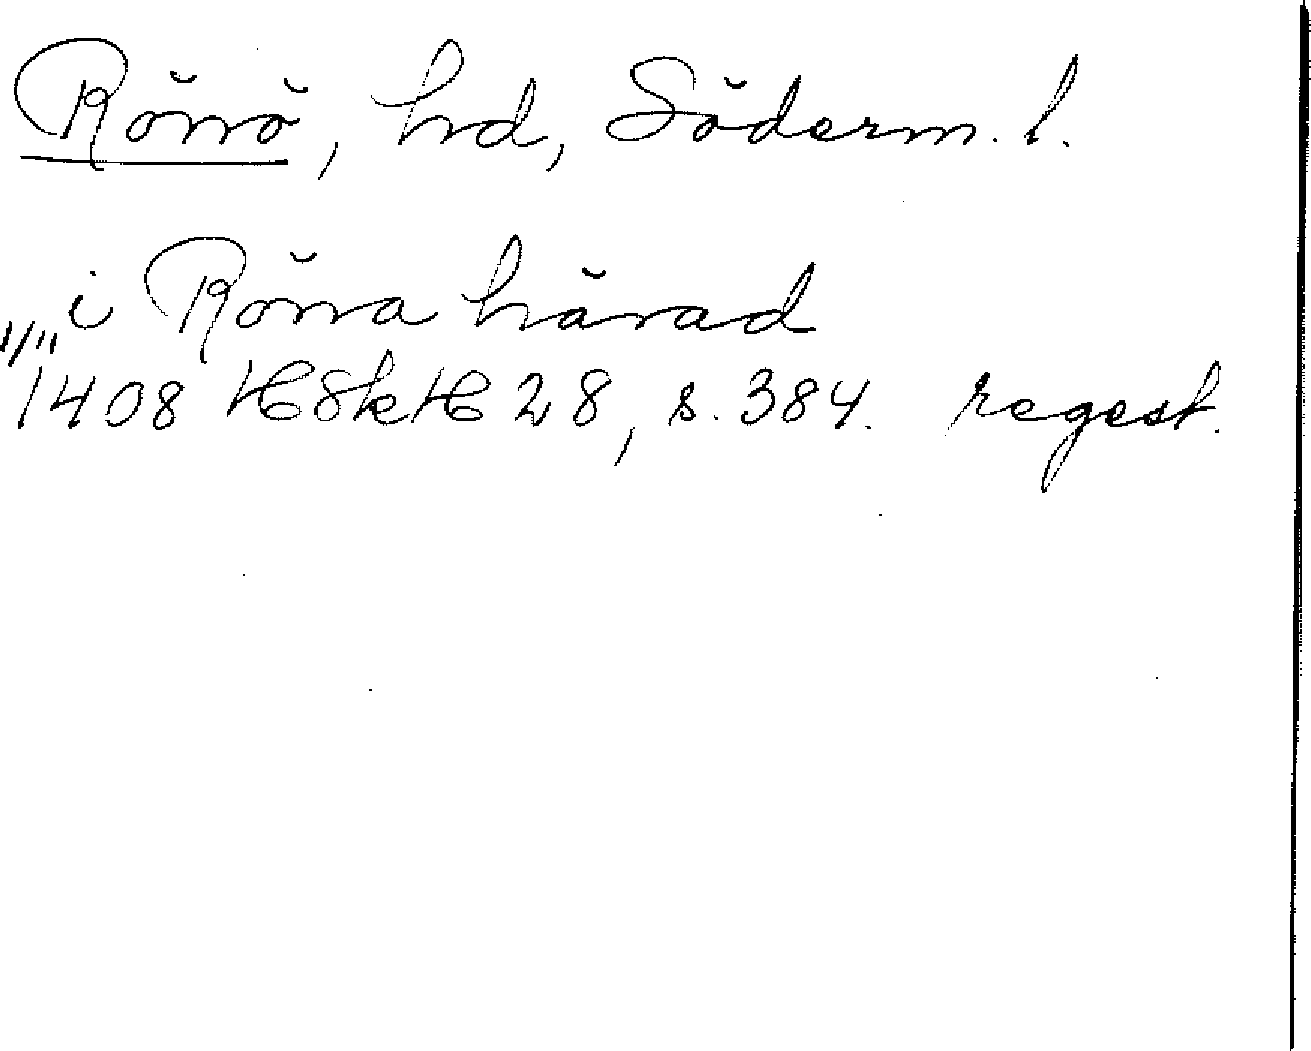 Rönö, hd, Söderm. l.
i Röna härad
1/11
1408 HSkH 28, s. 384. regest.